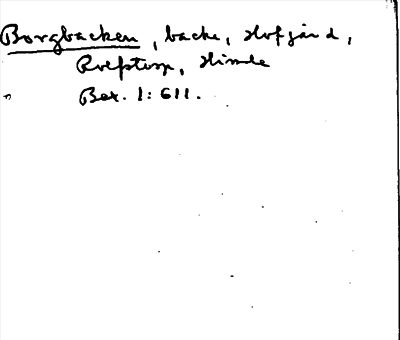 Borgbacken, backe, Hofgård,
Rolfstorp, Himle
" Bex. 1:611.